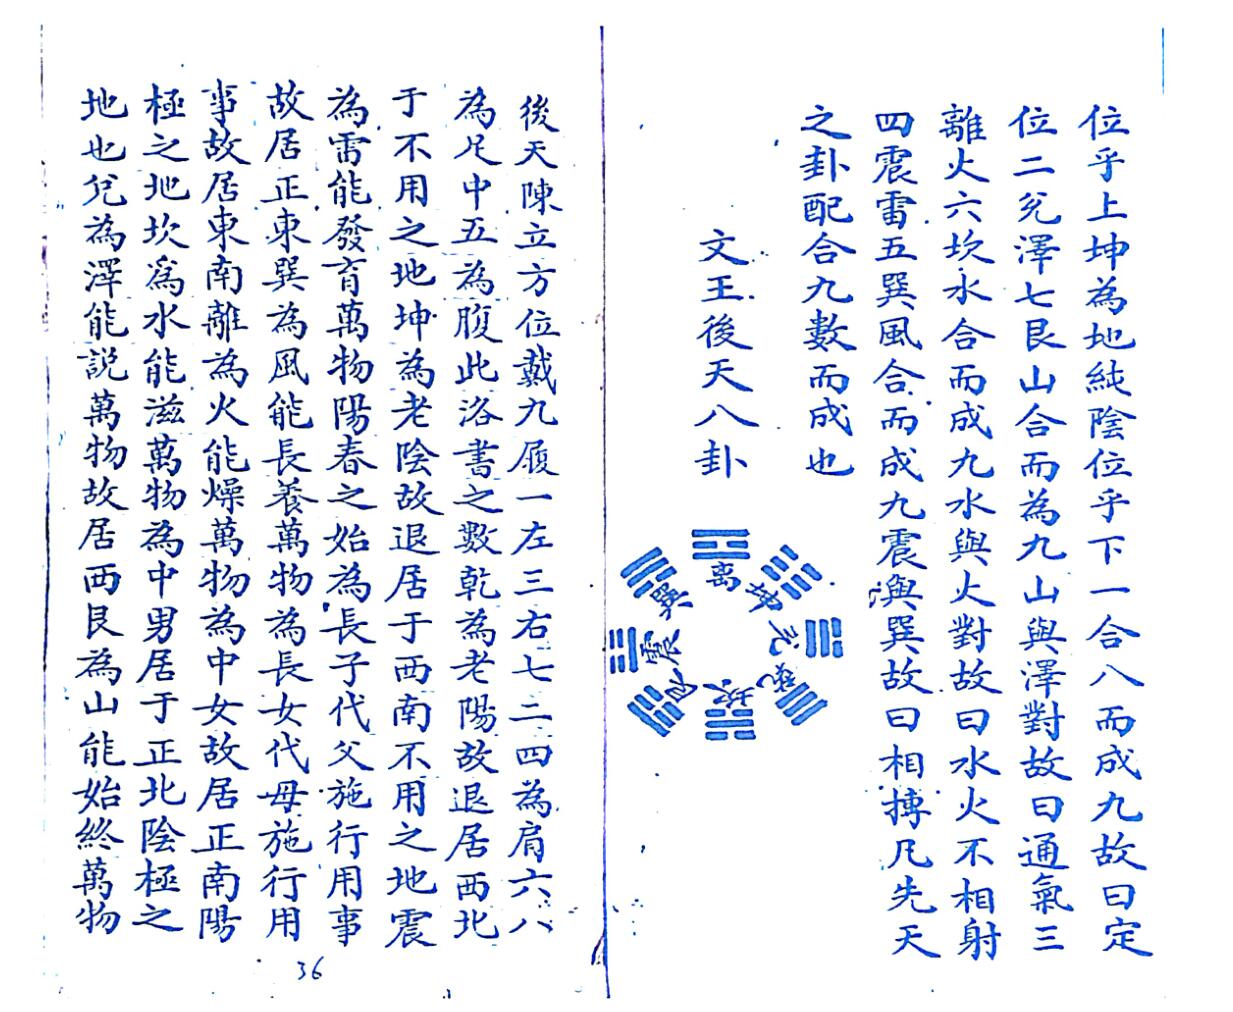 位乎上坤為地純陰位乎下一合八而成九故曰定
位二兊澤七艮山合而為九山與澤對故曰通氣三
離火六坎水合而成九水與火對故曰水火不相射
四震雷五巽風合而成九震與巽故曰相搏凡先天
之卦配合九數而成也
文王後天八卦
离
坤
兊
乾
坎
艮
震
巽
後天陳立方位戴九履一左三右七二四為肩六八
為足中五為腹此洛書之數乾為老陽故退居西北
于不用之地坤為老陰故退居于西南不用之地震
為雷能發育萬物陽春之始為長子代父施行用事
故居正東巽為風能長養萬物為長女代母施行用
事故居東南離為火能燥萬物為中女故居正南陽
極之地坎為水能滋萬物為中男居于正北陰極之
地也兌為澤能説萬物故居西艮為山能始終萬物
36